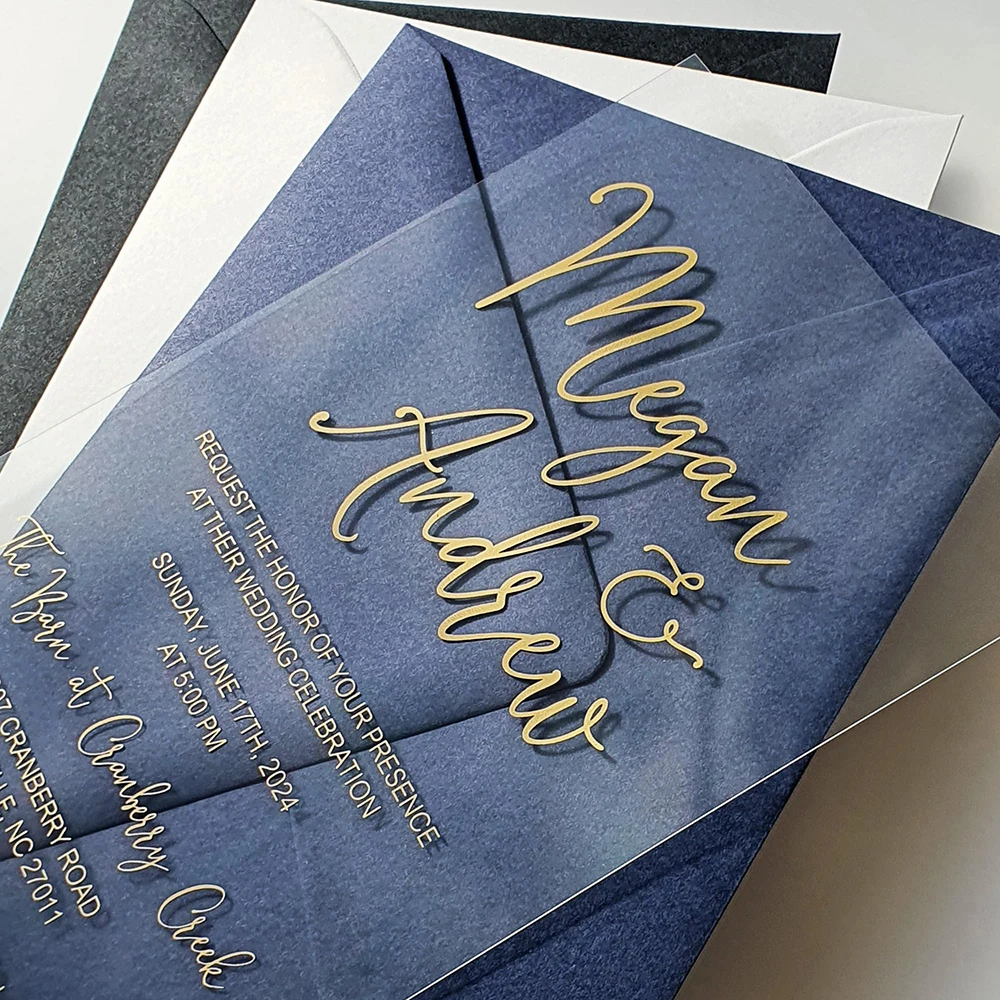 Megan
&
Andrew
REQUEST THE HONOR OF YOUR PRESENCE
AT THEIR WEDDING CELEBRATION
SUNDAY, JUNE 17TH, 2024
AT 5:00 PM
The Barn at Cranberry Creek
CRANBERRY ROAD
NC 27011